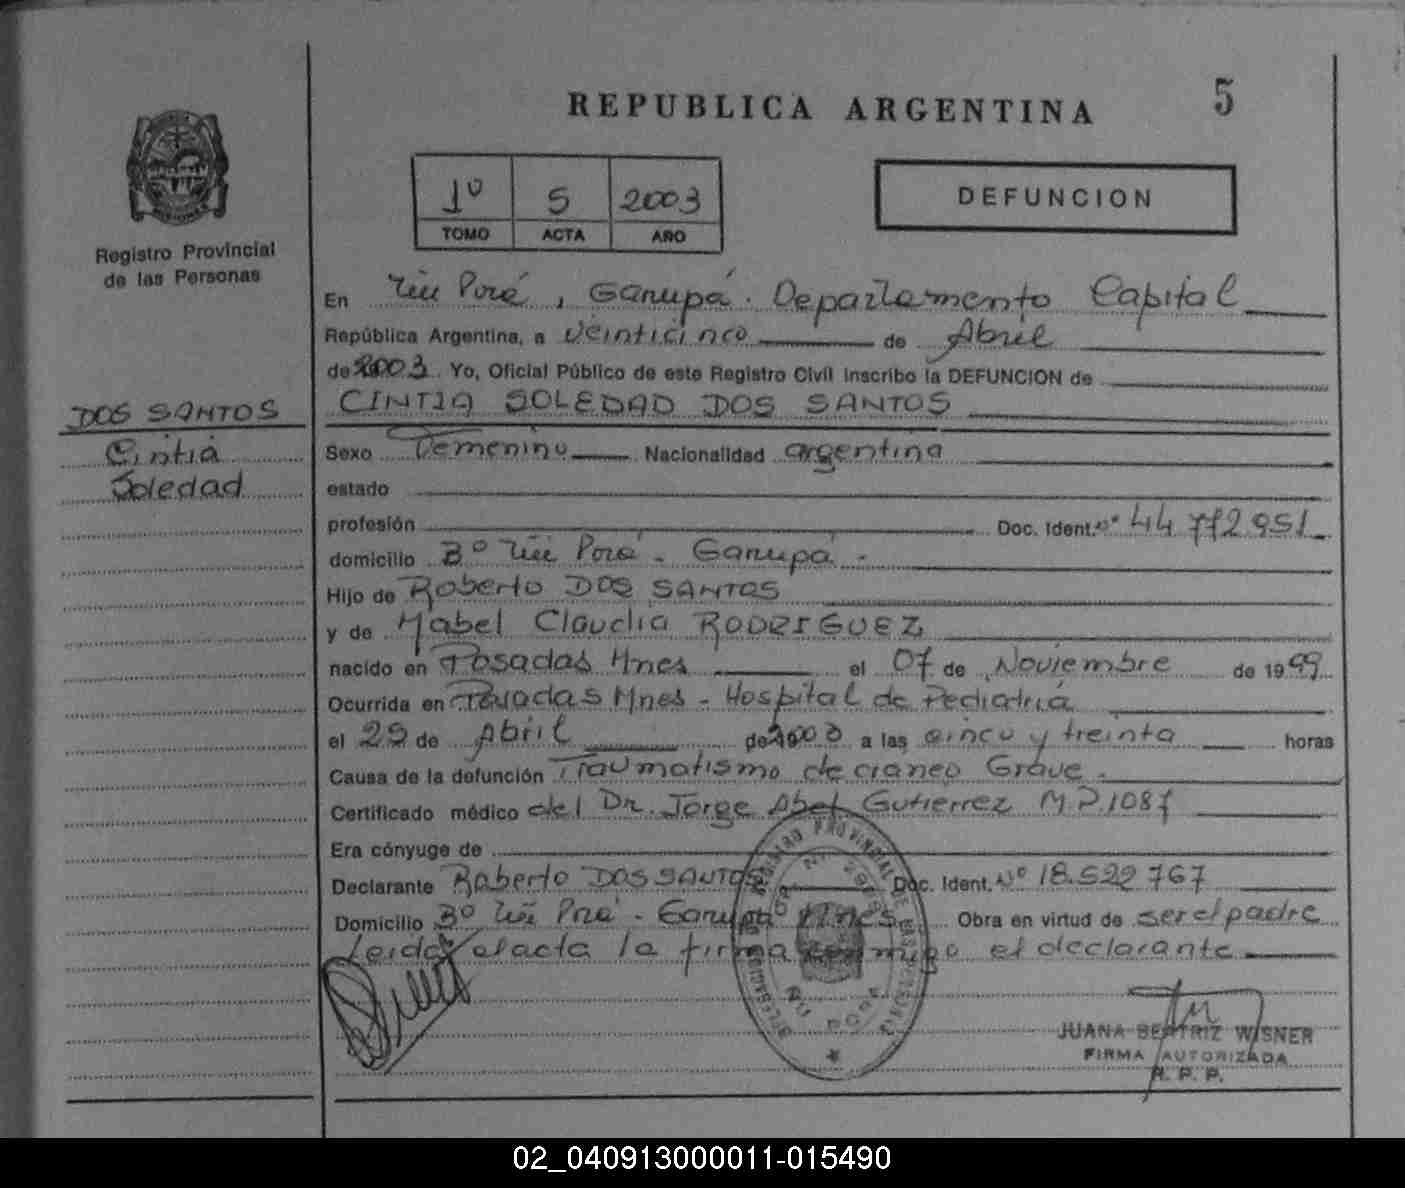 REPUBLICA ARGENTINA
5
1º 5 2003
TOMO ACTA AÑO
DEFUNCION
Registro Provincial
de las Personas
En Porá, Garupá. Departamento Capital
República Argentina, a veinticinco de Abril
de 2003. Yo, Oficial Público de este Registro Civil inscribo la DEFUNCION de
CINTIA SOLEDAD DOS SANTOS
DOS SANTOS
Cintia
Soledad
Sexo Femenino Nacionalidad argentina
estado
profesión Doc. Ident. Nº 44.772.951
domicilio Bº Porá - Garupá -
Hijo de Roberto DOS SANTOS
y de Mabel Claudia RODRIGUEZ
nacido en Posadas Mnes el 07 de Noviembre de 1999
Ocurrida en Posadas Mnes - Hospital de Pediatría
el de Abril de 2003 a las cinco y treinta horas
Causa de la defunción Traumatismo de craneo Grave.
Certificado médico del Dr. Jorge Abel Gutierrez M.P.1087
Era cónyuge de
Declarante Roberto DOS SANTOS Doc. Ident. Nº 18.522.767
Domicilio Bº Porá - Garupá Mnes Obra en virtud de ser el padre
Leida el acta la firma conmigo el declarante
JUANA BEATRIZ WISNER
FIRMA AUTORIZADA
R. P. P.
02_040913000011-015490